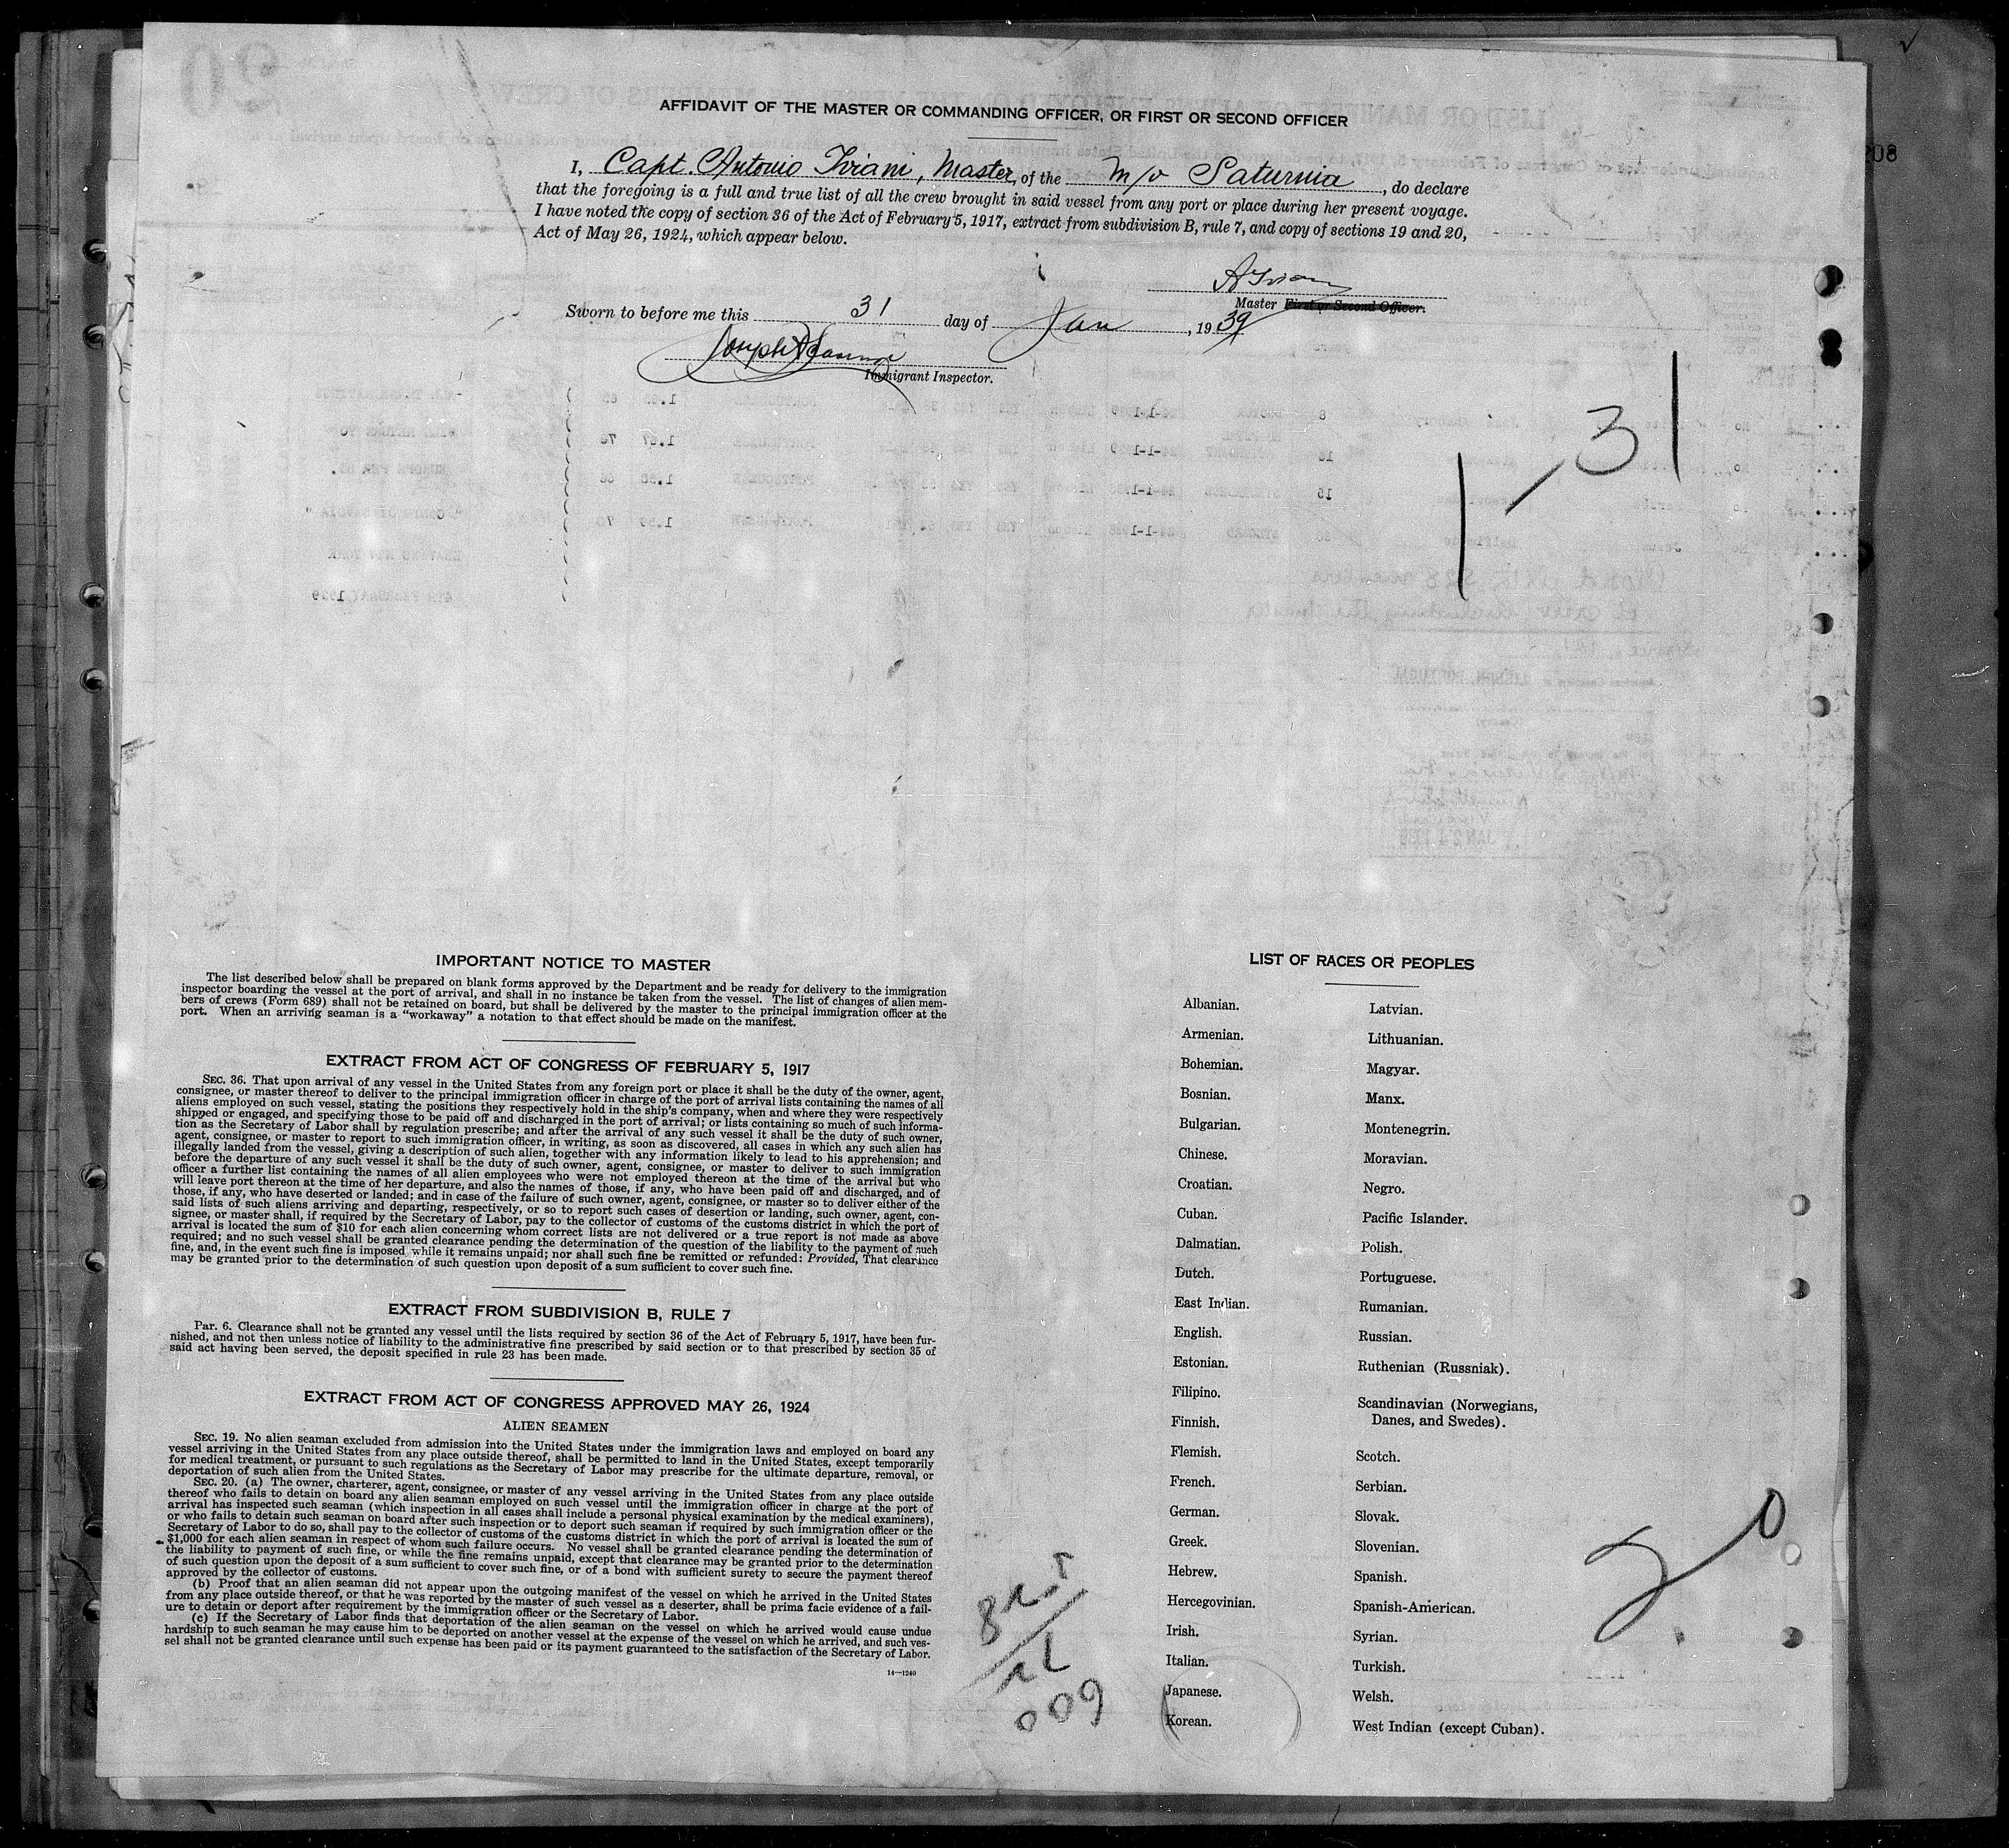 AFFIDAVIT OF THE MASTER OR COMMANDING OFFICER, OR FIRST OR SECOND OFFICER
I, Capt. Antonio Iviani, Master, of the m/v Saturnia, do declare
that the foregoing is a full and true list of all the crew brought in said vessel from any port or place during her present voyage.
I have noted the copy of section 36 of the Act of February 5, 1917, extract from subdivision B, rule 7, and copy of sections 19 and 20,
Act of May 26, 1924, which appear below.
Master First or Second Officer.
Sworn to before me this 31 day of Jan, 1939
Joseph
Immigrant Inspector.
208
1-31
IMPORTANT NOTICE TO MASTER
The list described below shall be prepared on blank forms approved by the Department and be ready for delivery to the immigration
inspector boarding the vessel at the port of arrival, and shall in no instance be taken from the vessel. The list of changes of alien mem-
bers of crews (Form 689) shall not be retained on board, but shall be delivered by the master to the principal immigration officer at the
port. When an arriving seaman is a "workaway" a notation to that effect should be made on the manifest.
EXTRACT FROM ACT OF CONGRESS OF FEBRUARY 5, 1917
SEC. 36. That upon arrival of any vessel in the United States from any foreign port or place it shall be the duty of the owner, agent,
consignee, or master thereof to deliver to the principal immigration officer in charge of the port of arrival lists containing the names of all
aliens employed on such vessel, stating the positions they respectively hold in the ship's company, when and where they were respectively
shipped or engaged, and specifying those to be paid off and discharged in the port of arrival; or lists containing so much of such informa-
tion as the Secretary of Labor shall by regulation prescribe; and after the arrival of any such vessel it shall be the duty of such owner,
agent, consignee, or master to report to such immigration officer, in writing, as soon as discovered, all cases in which any such alien has
illegally landed from the vessel, giving a description of such alien, together with any information likely to lead to his apprehension; and
before the departure of any such vessel it shall be the duty of such owner, agent, consignee, or master to deliver to such immigration
officer a further list containing the names of all alien employees who were not employed thereon at the time of the arrival but who
will leave port thereon at the time of her departure, and also the names of those, if any, who have been paid off and discharged, and of
those, if any, who have deserted or landed; and in case of the failure of such owner, agent, consignee, or master so to deliver either of the
said lists of such aliens arriving and departing, respectively, or so to report such cases of desertion or landing, such owner, agent, con-
signee, or master shall, if required by the Secretary of Labor, pay to the collector of customs of the customs district in which the port of
arrival is located the sum of $10 for each alien concerning whom correct lists are not delivered or a true report is not made as above
required; and no such vessel shall be granted clearance pending the determination of the question of the liability to the payment of such
fine, and, in the event such fine is imposed, while it remains unpaid; nor shall such fine be remitted or refunded: Provided, That clearance
may be granted prior to the determination of such question upon deposit of a sum sufficient to cover such fine.
EXTRACT FROM SUBDIVISION B, RULE 7
PAR. 6. Clearance shall not be granted any vessel until the lists required by section 36 of the Act of February 5, 1917, have been fur-
nished, and not then unless notice of liability to the administrative fine prescribed by said section or to that prescribed by section 35 of
said act having been served, the deposit specified in rule 23 has been made.
EXTRACT FROM ACT OF CONGRESS APPROVED MAY 26, 1924
ALIEN SEAMEN
SEC. 19. No alien seaman excluded from admission into the United States under the immigration laws and employed on board any
vessel arriving in the United States from any place outside thereof, shall be permitted to land in the United States, except temporarily
for medical treatment, or pursuant to such regulations as the Secretary of Labor may prescribe for the ultimate departure, removal, or
deportation of such alien from the United States.
SEC. 20. (a) The owner, charterer, agent, consignee, or master of any vessel arriving in the United States from any place outside
thereof who fails to detain on board any alien seaman employed on such vessel until the immigration officer in charge at the port of
arrival has inspected such seaman (which inspection in all cases shall include a personal physical examination by the medical examiners),
or who fails to detain such seaman on board after such inspection or to deport such seaman if required by such immigration officer or the
Secretary of Labor to do so, shall pay to the collector of customs of the customs district in which the port of arrival is located the sum of
$1,000 for each alien seaman in respect of whom such failure occurs. No vessel shall be granted clearance pending the determination of
the liability to payment of such fine, or while the fine remains unpaid, except that clearance may be granted prior to the determination
of such question upon the deposit of a sum sufficient to cover such fine, or of a bond with sufficient surety to secure the payment thereof
approved by the collector of customs.
(b) Proof that an alien seaman did not appear upon the outgoing manifest of the vessel on which he arrived in the United States
from any place outside thereof, or that he was reported by the master of such vessel as a deserter, shall be prima facie evidence of a fail-
ure to detain or deport after requirement by the immigration officer or the Secretary of Labor.
(c) If the Secretary of Labor finds that deportation of the alien seaman on the vessel on which he arrived would cause undue
hardship to such seaman he may cause him to be deported on another vessel at the expense of the vessel on which he arrived, and such ves-
sel shall not be granted clearance until such expense has been paid or its payment guaranteed to the satisfaction of the Secretary of Labor.
14—1240
LIST OF RACES OR PEOPLES
Albanian.
Armenian.
Bohemian.
Bosnian.
Bulgarian.
Chinese.
Croatian.
Cuban.
Dalmatian.
Dutch.
East Indian.
English.
Estonian.
Filipino.
Finnish.
Flemish.
French.
German.
Greek.
Hebrew.
Hercegovinian.
Irish.
Italian.
Japanese.
Korean.
Latvian.
Lithuanian.
Magyar.
Manx.
Montenegrin.
Moravian.
Negro.
Pacific Islander.
Polish.
Portuguese.
Rumanian.
Russian.
Ruthenian (Russniak).
Scandinavian (Norwegians,
Danes, and Swedes).
Scotch.
Serbian.
Slovak.
Slovenian.
Spanish.
Spanish-American.
Syrian.
Turkish.
Welsh.
West Indian (except Cuban).
20